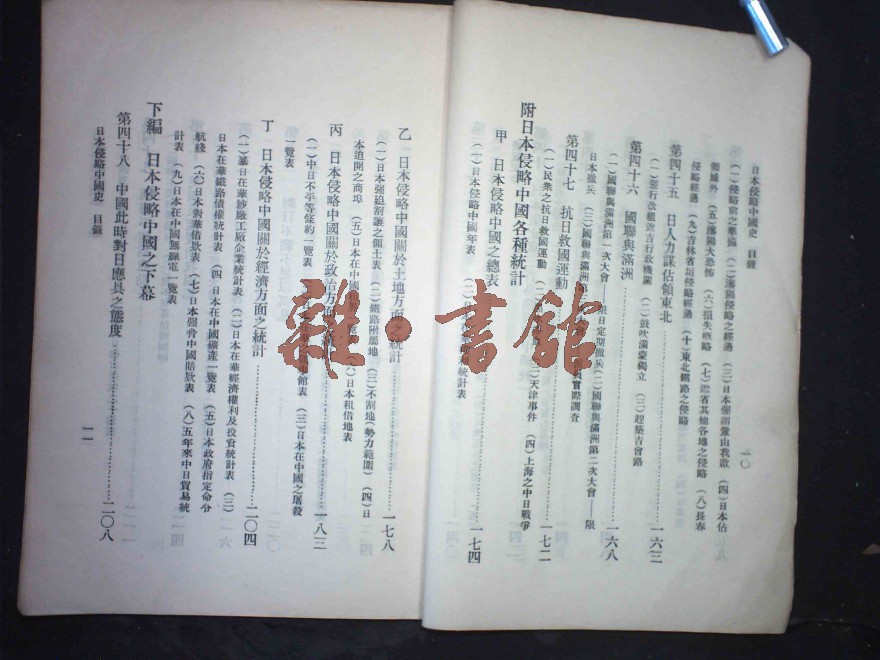 日本侵略中國史 目錄
一〇
(一)侵略前之準備 (二)瀋陽侵略之經過 (三)日本強謂釁由我啟 (四)日本佔
領城外 (五)瀋陽大恐怖 (六)損失概略 (七)遼省其他各地之侵略 (八)長春
侵略經過 (九)吉林省垣侵略經過 (十)東北鐵路之侵略
第四十五 日人力謀佔領東北……一六三
(一)強行改組遼吉行政機關 (二)鼓吹滿蒙獨立 (三)趕築吉會路
第四十六 國聯與滿洲……一六八
(一)國聯與滿洲第一次大會——限日定期撤兵 (二)國聯與滿洲第二次大會——限
日本撤兵 (三)國聯與滿洲 實際調查
第四十七 抗日救國運動……一七二
(一)民衆之抗日救國運動 (二) (三)天津事件 (四)上海之中日戰爭
附日本侵略中國各種統計
甲 日本侵略中國之總表……一七四
(一)日本侵略中國年表 (二) 統計表
乙 日本侵略中國關於土地方面之統計……一七八
(一)日本强迫割讓之領土表 (二)鐵路附屬地 (三)不割地(勢力範圍) (四)日
本迫開之商埠 (五)日本在中國租界 (六)日本租借地表
丙 日本侵略中國關於政治方面之統計……一八三
(一)中日不平等條約一覽表 館表 (三)日本在中國之屠殺
一覽表
丁 日本侵略中國關於經濟方面之統計……二〇四
(一)暴日在華紗廠工廠企業統計表 (二)日本在華經濟權利及投資統計表 (三)
日本在華鐵路債權統計表 (四)日本在中國礦產一覽表 (五)日本政府指定命令
航綫 (六)日本對華借欵表 (七)日本强會中國賠欵表 (八)五年來中日貿易統
計表 (九)日本在中國無線電一覽表
下編 日本侵略中國之下幕
第四十八 中國此時對日應具之態度……二〇八
日本侵略中國史 目錄
一一
雜·書館